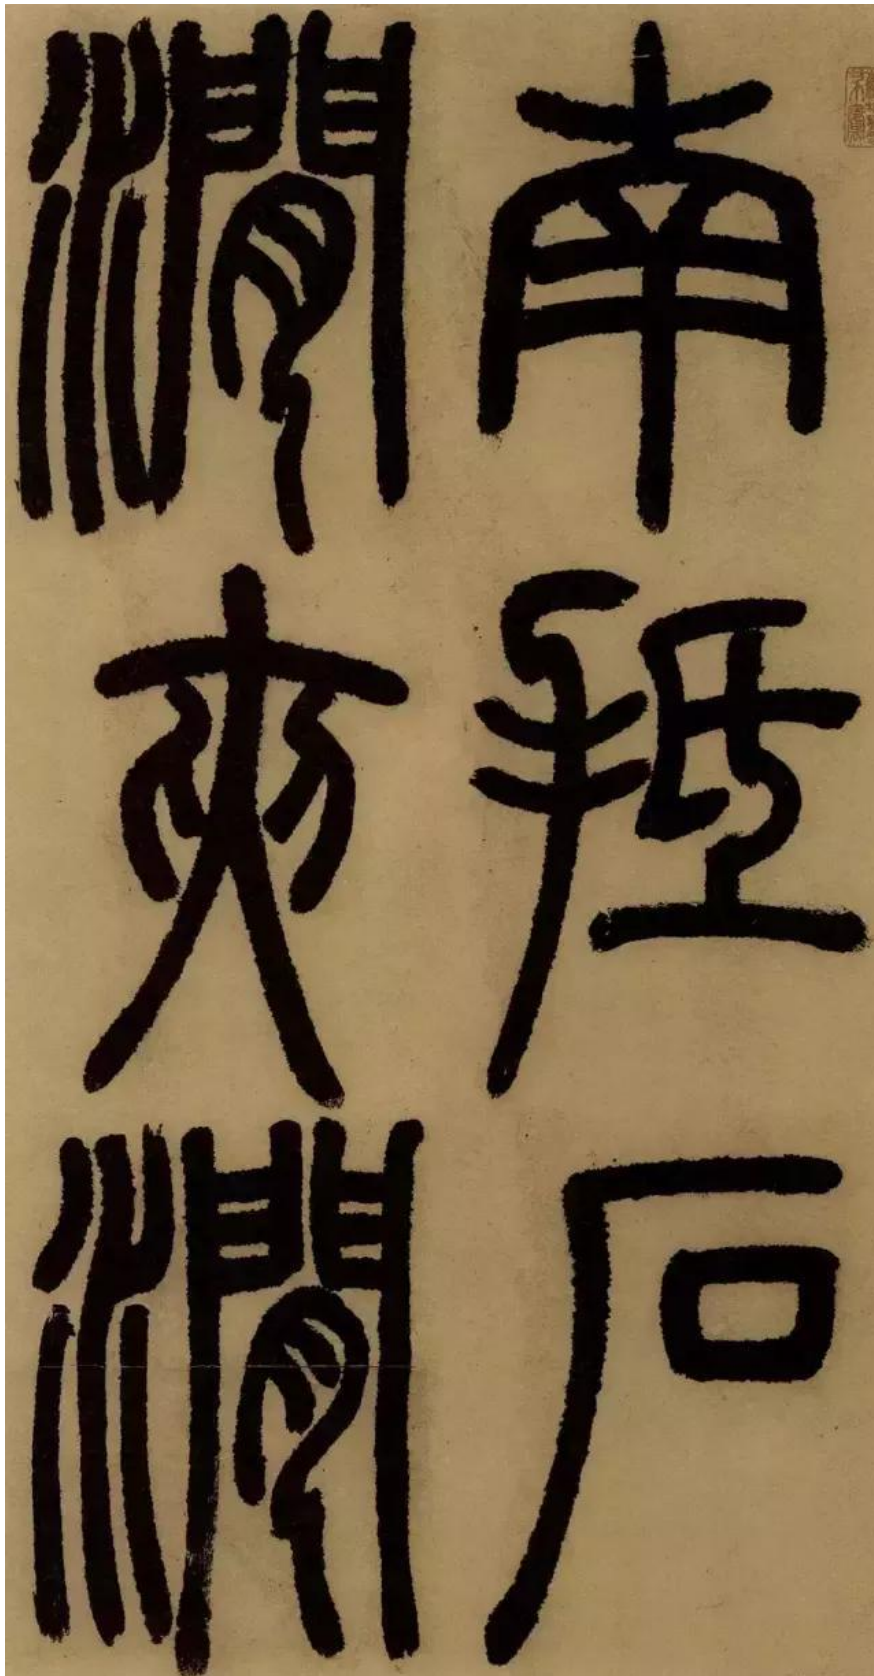 南抵石
澗夾澗